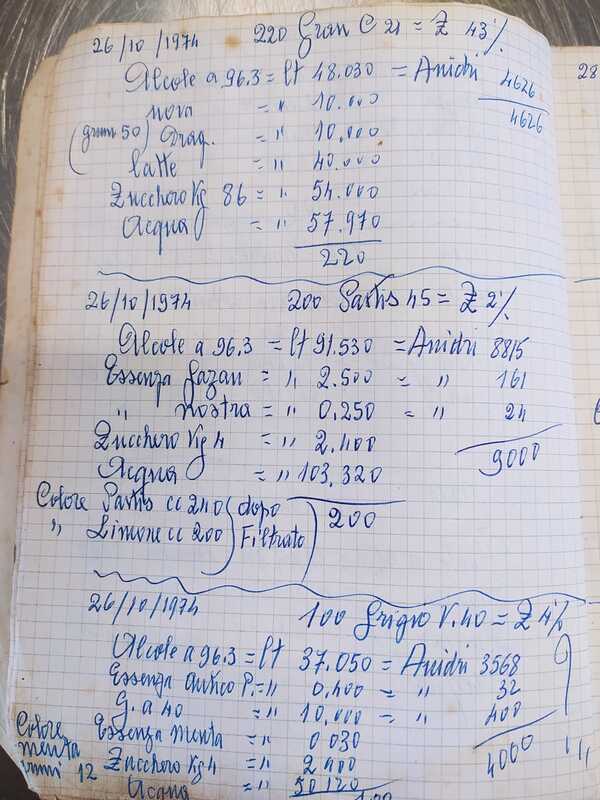 26/10/1974 220 Gran C 21 = Z 43%
Alcole a 96.3 = lt 48.030 = Anidri 4626
uova = " 10.000 4626
(grammi 50) Drag. = " 10.000
latte = " 40.000
Zucchero Kg 86 = " 54.000
Acqua = " 57.970
220
28
26/10/1974 200 Pastis 45 = Z 2%
Alcole a 96.3 = lt 91.530 = Anidri 8815
Essenza Gazan = " 2.500 = " 161
" nostra = " 0,250 = " 24
Zucchero Kg 4 = " 2.400 9000
Acqua = " 103,320
Colore Pastis cc 240 (dopo 200
" Limone cc 200 Filtrato)
26/10/1974 100 Grigio V. 40 = Z 4%
Alcole a 96.3 = lt 37.050 = Anidri 3568
Essenza Antico P. = " 0,400 = " 32
G. a 40 = " 10,000 = " 400
Colore Essenza menta = " 0 030 4000 " "
menta Zucchero Kg 4 = " 2 400
12 Acqua = " 50 120